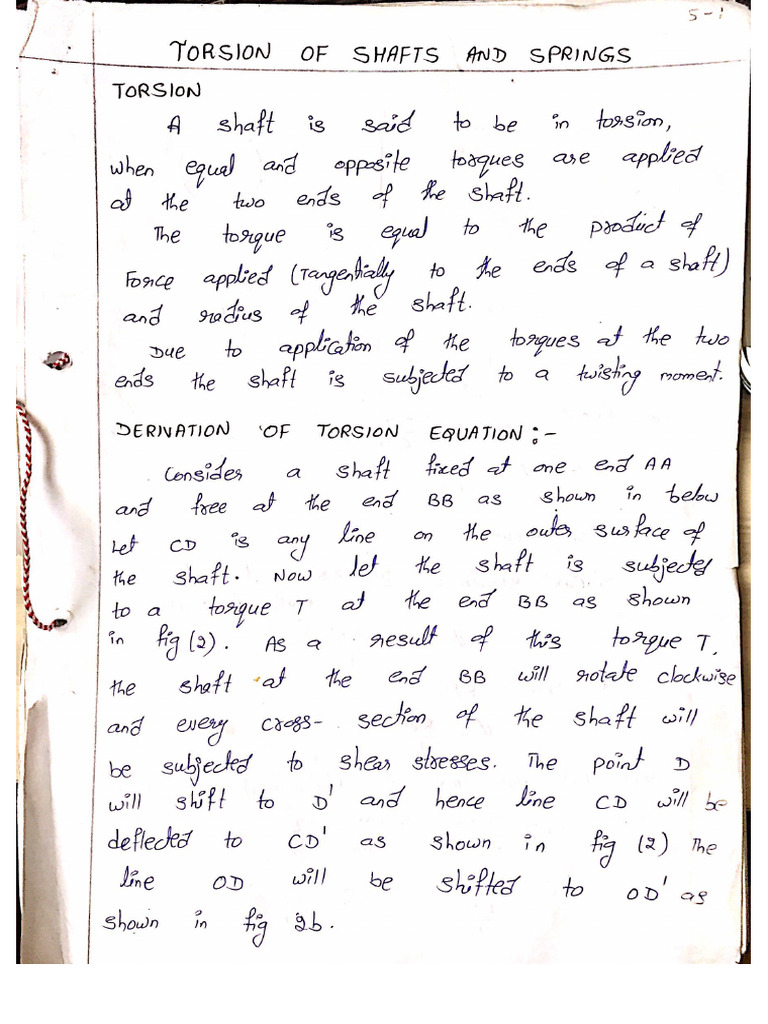 5-1
TORSION OF SHAFTS AND SPRINGS
TORSION
A shaft is said to be in torsion,
when equal and opposite torques are applied
at the two ends of the shaft.
The torque is equal to the product of
Force applied (Tangentially to the ends of a shaft)
and radius of the shaft.
Due to application of the torques at the two
ends the shaft is subjected to a twisting moment.
DERIVATION OF TORSION EQUATION:-
Consider a shaft fixed at one end AA
and free at the end BB as shown in below
Let CD is any line on the outer surface of
the shaft. Now let the shaft is subjected
to a torque T at the end BB as shown
in fig (2). As a result of this torque T,
the shaft at the end BB will rotate clockwise
and every cross-section of the shaft will
be subjected to shear stresses. The point D
will shift to D' and hence line CD will be
deflected to CD' as shown in fig (2) The
line OD will be shifted to OD' as
shown in fig 2b.